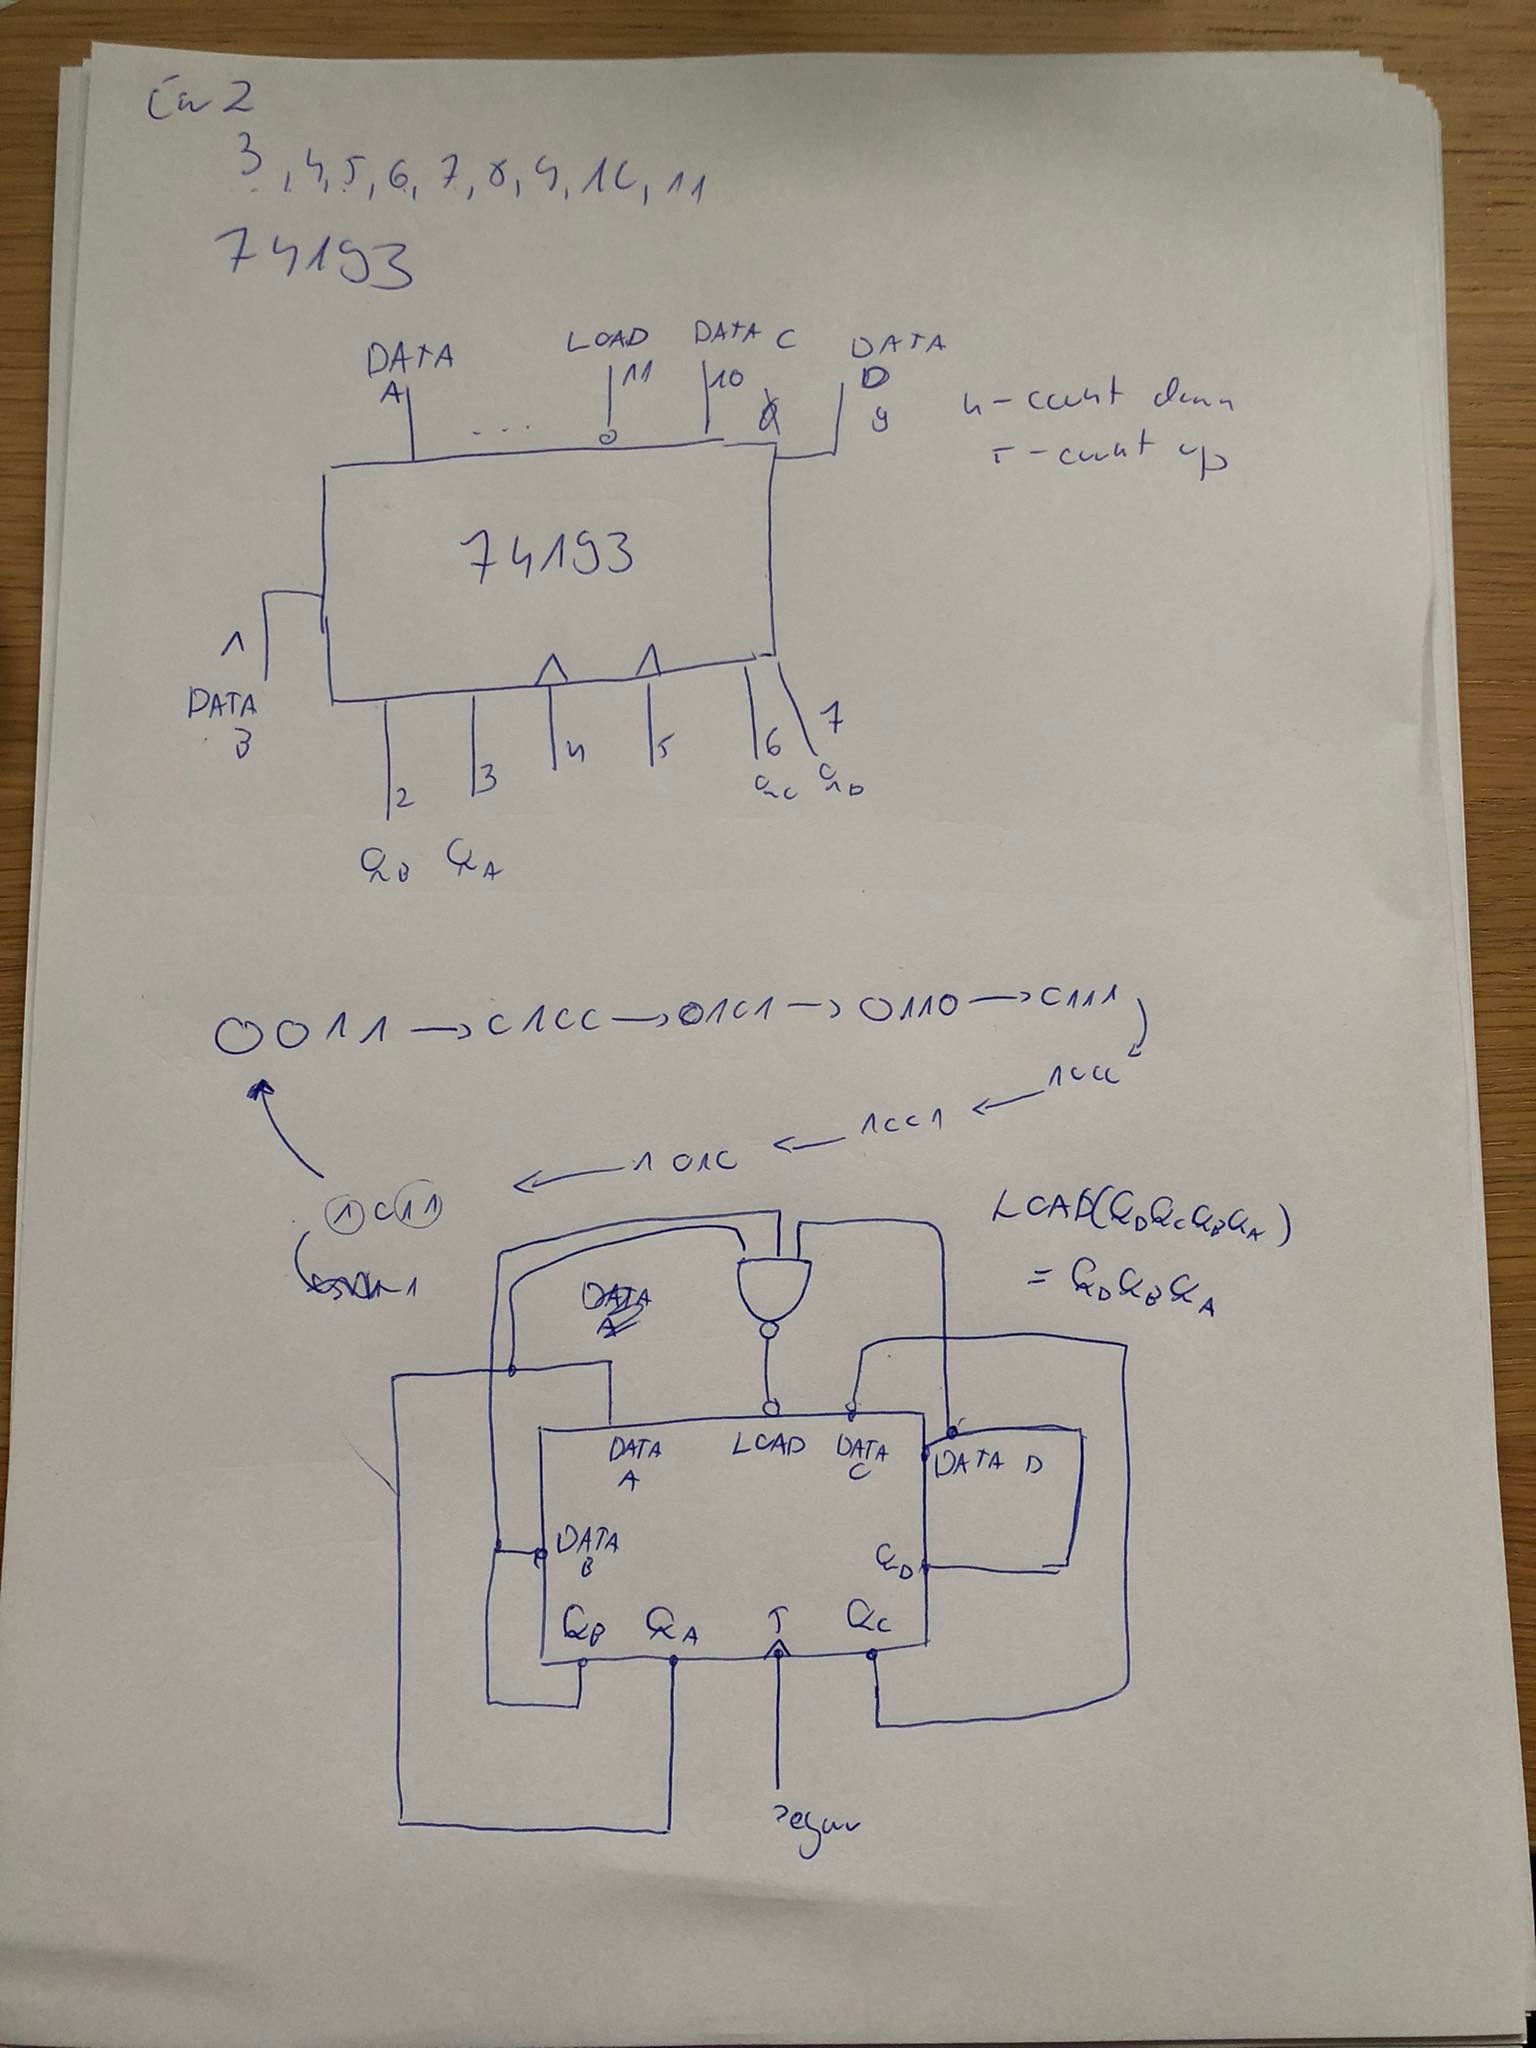 Ćw 2
3, 4, 5, 6, 7, 8, 9, 10, 11
74193
DATA A
LOAD 11
DATA C 10
DATA D 9
4 - count down
5 - count up
74193
1 DATA B
2 3 4 5 6 7
QB QA QC QD
0011 → 0100 → 0101 → 0110 → 0111
1000
← 1001 ←
← 1010 ←
1011
LOAD(QD QC QB QA)
= QD QB QA
DATA A
DATA A LOAD DATA C DATA D
DATA B QD
QB QA 5 QC
zegar